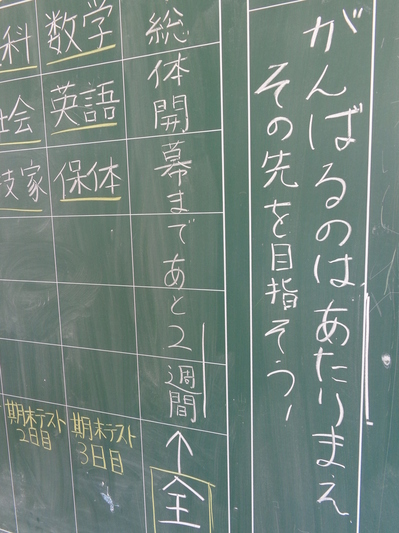 がんばるのはあたりまえ
その先を目指そう!
総体開幕まであと2週間
↑
全
数学
英語
保体
期末テスト
3日目
科
社会
技家
期末テスト
2日目